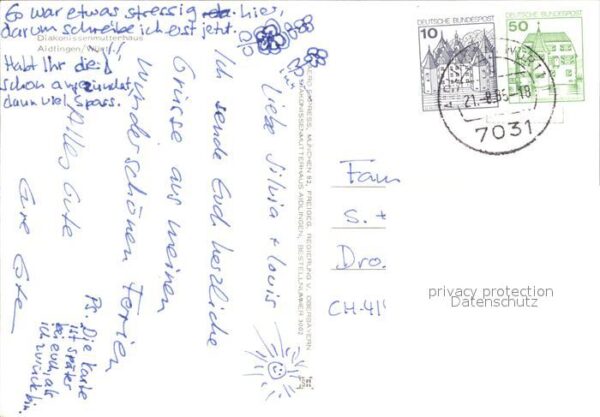 Es war etwas stressig hier,
darum schreibe ich erst jetzt.
Diakonissenmutterhaus
Aidlingen/Württ.
Habt Ihr die
schon angezündet,
dann viel Spass.
Liebe Silvia + Louis
Ich sende Euch herzliche
Grüsse aus meinen
wunderschönen Ferien
Alles Gute
Eure
Ps. Die Karte
ist später
bei euch, als
ich zurück bin.
AERO EXPRESS, MÜNCHEN 92, FREIGEG. REGIERUNG V. OBERBAYERN
DIAKONISSENMUTTERHAUS AIDLINGEN, BESTELLNUMMER
DEUTSCHE BUNDESPOST
10
DEUTSCHE BUNDESPOST
50
21.-8.85-18
7031
Fam
S. +
Dro.
CH-41
privacy protection
Datenschutz